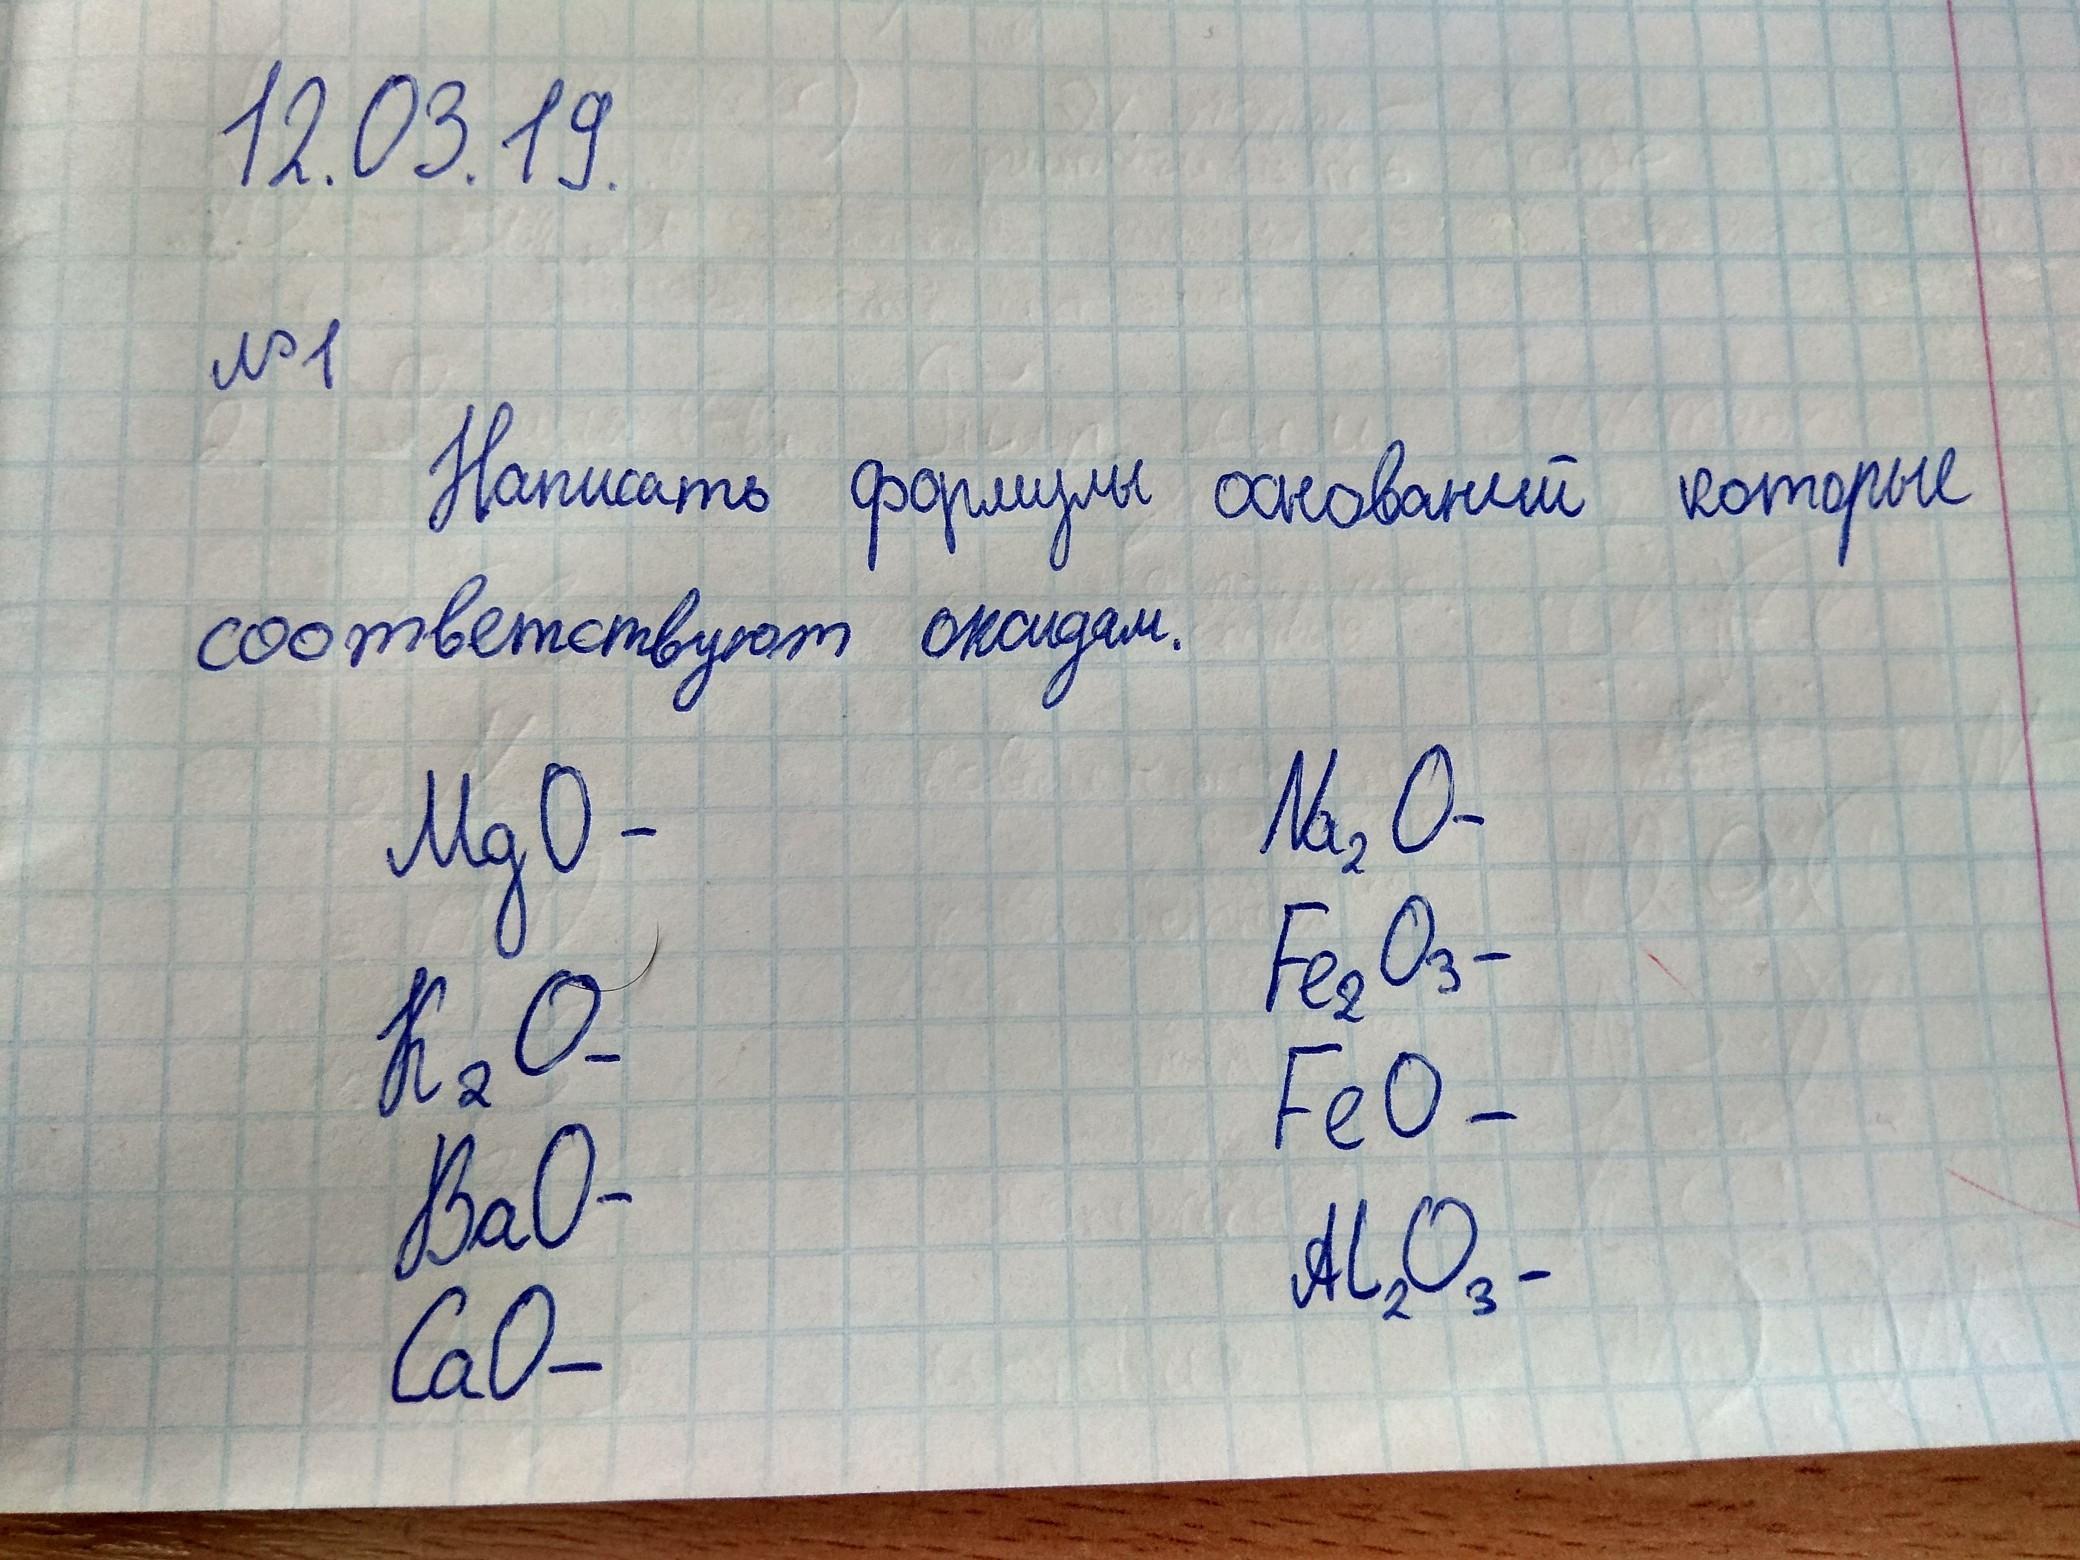 12.03.19.
№1
Написать формулы оснований которые
соответствуют оксидам.
MgO -
K₂O -
BaO -
CaO -
Na₂O -
Fe₂O₃ -
FeO -
Al₂O₃ -